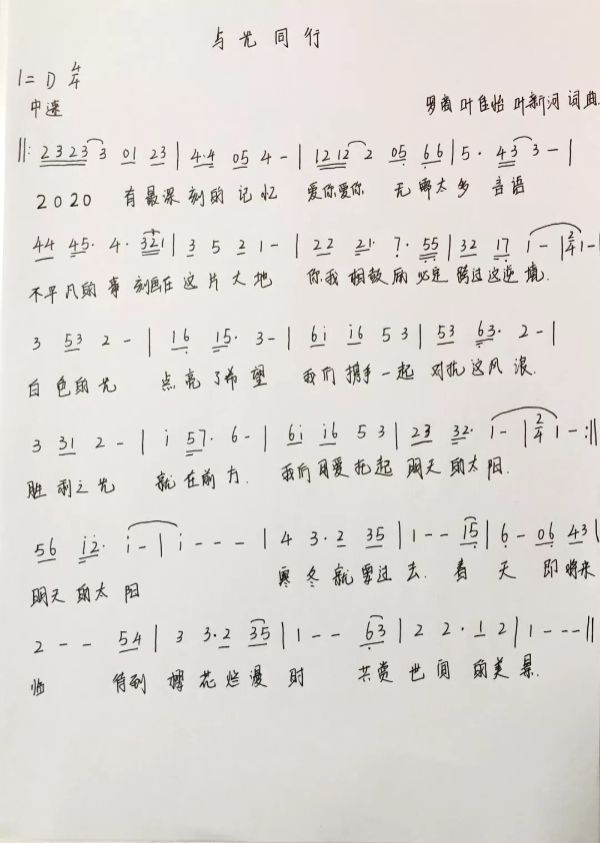 与光同行
1=D 4/4
中速
罗茜 叶佳怡 叶新河 词曲
‖: 2323 3 01 23 | 4·4 05 4 - | 1212 2 05 66 | 5· 43 3 - |
2020 有最深刻的记忆 爱你爱你 无哪太多言语
44 45· 4· 321 | 3 5 2 1 - | 22 21· 7· 55 | 32 17 1 - | 2/4 1 - |
不平凡的事 刻画在这片大地 你我相数 必定跨过这逆境.
3 53 2 - | 16 15· 3 - | 6i i6 5 3 | 53 63· 2 - |
白色的光 点亮了希望 我们携手一起 对抗这风浪.
3 31 2 - | i 57· 6 - | 6i i6 5 3 | 23 32· 1 - | 2/4 1 - :‖
胜利之光 就在前方. 我们用爱托起 明天的太阳.
56 i2· i - | i - - - | 4 3·2 35 | 1 - - 15 | 6 - 06 43 |
明天的太阳 寒冬就要过去. 春天 即将来
2 - - 54 | 3 3·2 35 | 1 - - 63 | 2 2·1 2 | 1 - - - ‖
临 待到樱花烂漫时 共赏世间的美景.